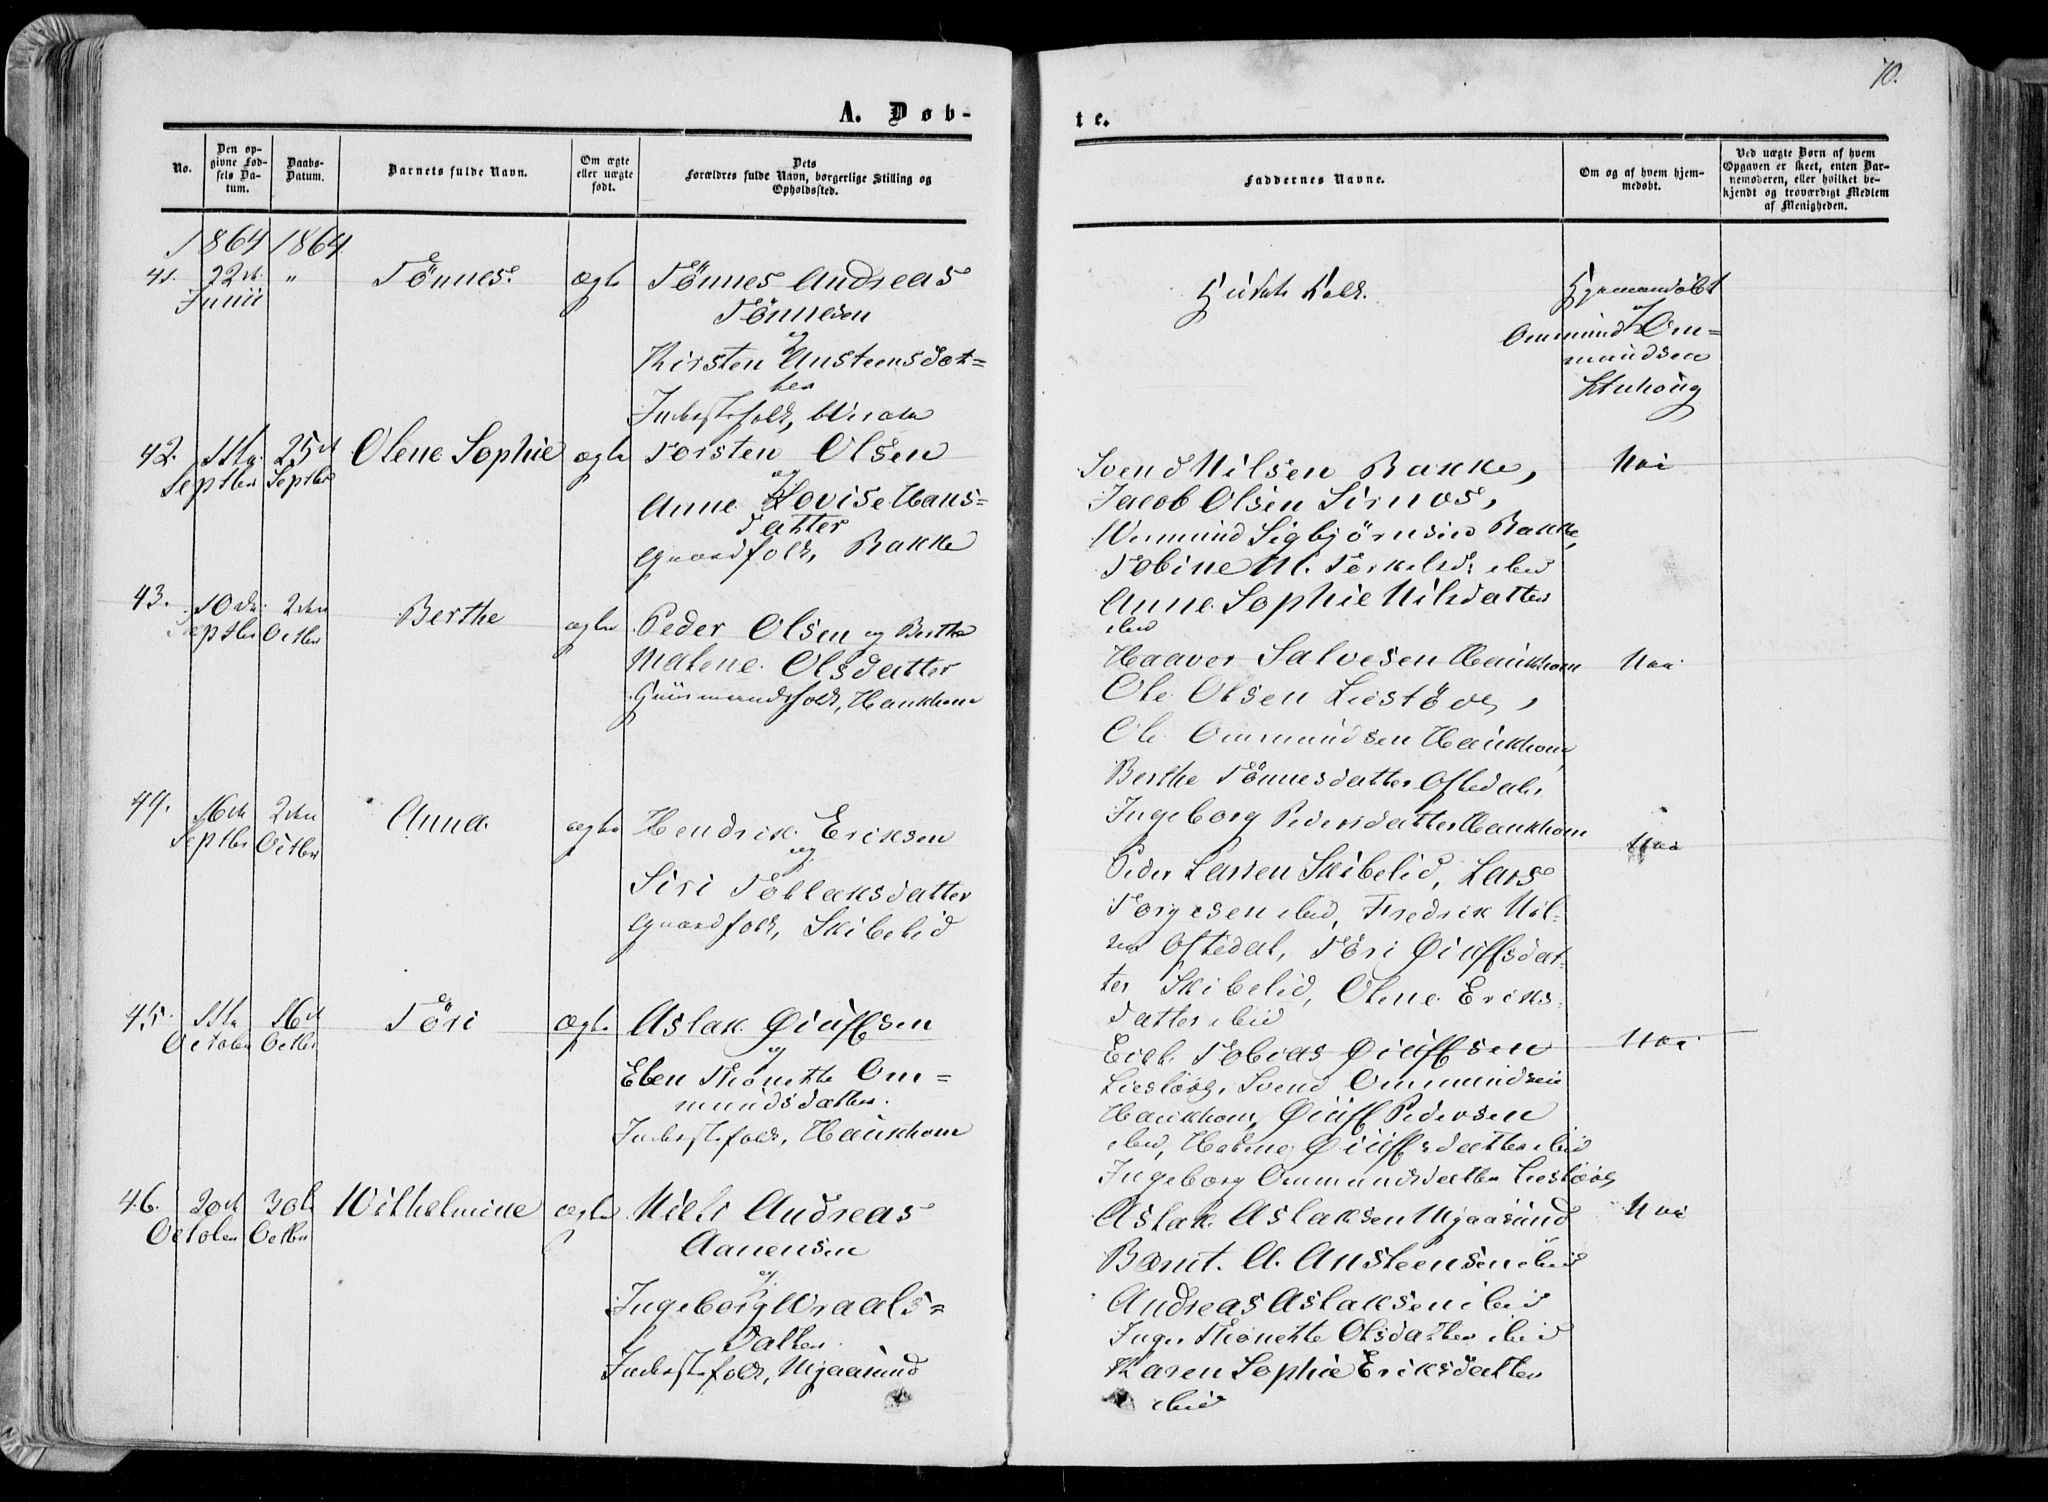 70.
A. Døb-
te.
No.
Den op-
givne Fød-
sels Da-
tum.
Daabs-
Datum.
Barnets fulde Navn.
Om ægte
eller uægte
født.
Dets
Forældres fulde Navn, borgerlige Stilling og
Opholdssted.
Faddernes Navne.
Om og af hvem hjem-
medøbt.
Ved uægte Børn af hvem
Opgaven er skeet, enten Bar-
nemoderen, eller hvilket be-
kjendt og troværdigt Medlem
af Menigheden.
1864 1864
41. 22de " Tönnes. ægte Tönnes Andreas
Junii
Tönnesen
og
Kirsten Austeensdat=
ter
Inderstfolk,
Hjemmedøbt
af
Ommund Om=
mundsen
42. 11te 25de Olene Sophie ægte Torsten Olsen
Septbr Septbr
og
Anne Lovise Hans=
datter
Gaardfolk, Bakke
Svend Nilsen Bakke, Nei
Jacob Olsen Sirnos,
Wermund Sigbjörnsen Bakke,
Tobine M. Terkelsd: ibid
Anne Sophie Nilsdatter
ibid
43. 10de 2den Berthe ægte Peder Olsen og Berthe
Septbr Octbr
Malene Olsdatter
Huusmandsfolk, Haukhom
Haaver Salvesen Haukhom Nei
Ole Olsen Liestöog,
Ole Ommundsen Haukhom,
Berthe Tönnesdatter Oftedal,
Ingeborg Pedersdatter Haukhom
44. 16de 2den Anna ægte Hendrik Eriksen
Septbr Octbr
og
Siri Toblaksdatter
Gaardfolk, Skibelid
Nei
Peder Larsen Skibelid, Lars
Torgesen ibid, Fredrik Nil-
sen Oftedal, Töri Öiuffsdat-
ter Skibelid, Olene Eriks-
datter ibid
45. 11te 16de Töri ægte Aslak Öiuffsen
October Octbr
og
Elen Thonette Om=
mundsdatter.
Inderstfolk, Haukhom
Erik Tobias Öiuffsen Nei
Liestöog, Svend Ommundsen
Haukhom, Öiuff Pedersen
ibid, Öiuffsdatter ibid
Ingeborg Ommundsdatter Liestöog
46. 20de 30te Wilhelmine ægte Niels Andreas
October Octbr
Aanensen
og
Ingeborg Wraals=
datter
Inderstfolk, Mjaasund
Aslak Aslaksen Mjaasund Nei
Bernt A. Austeensen ibid
Andreas Aslaksen ibid
Inger Thonette Olsdatter ibid
Karen Sophie Eriksdatter
ibid